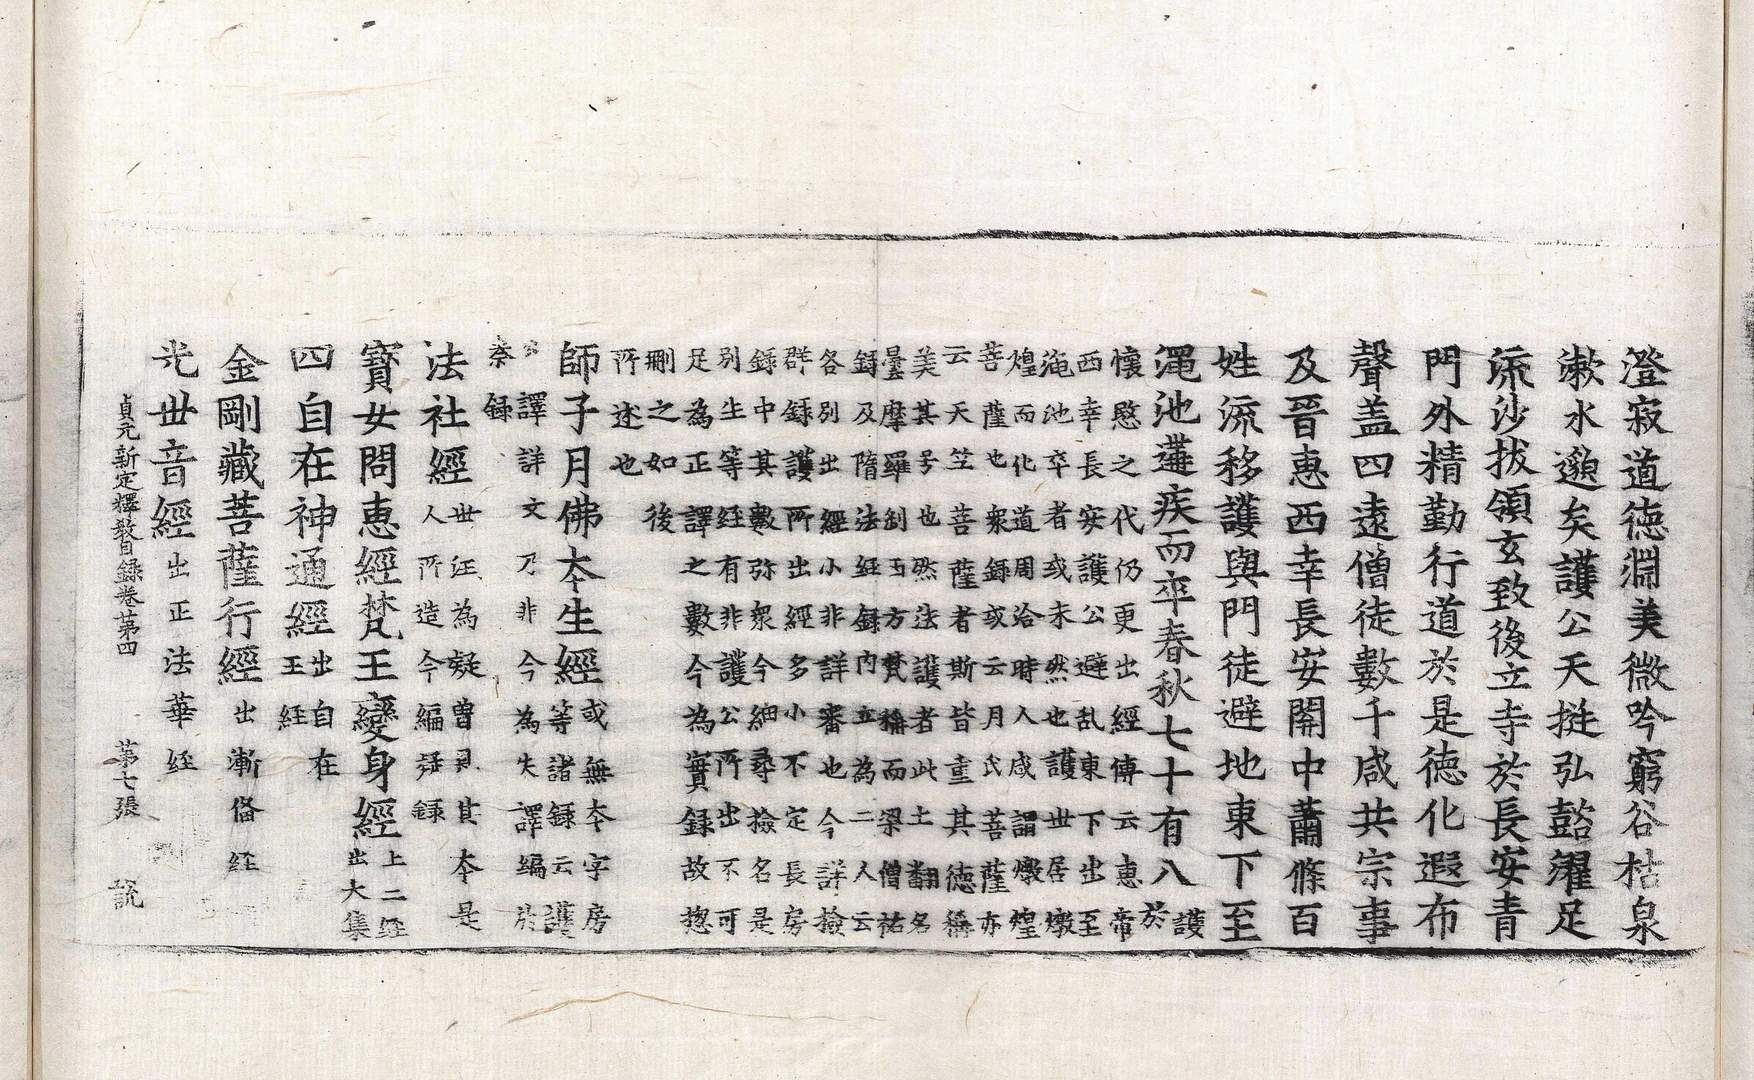 澄寂道德淵美微吟窮谷枯泉
漱水邈矣護公天挺弘懿濯足
流沙拔領玄致後立寺於長安青
門外精勤行道於是德化遐布
聲盖四遠僧徒數千咸共宗事
及晉惠西幸長安關中蕭條百
姓流移護與門徒避地東下至
澠池遘疾而卒春秋七十有八護於
懷愍之代仍更出經傳云惠帝
西幸長安護公避乱東下出至
澠池卒者或未然也護世居燉
煌而化道周洽時人咸謂燉煌
菩薩也衆録或云月氏菩薩亦
云天竺菩薩者斯皆重其德稱
美其号也然法護者此土翻名
曇摩羅刹五方梵稱而梁僧祐
録及隋法経録內立為二人云
各別出經小非詳審也今詳撿
群録護所出經多小不定長房
録中其數弥衆今細尋撿名是
別生等経有非護公所出不可
足為正譯之數今為實録故揔
刪之如後
所述也
師子月佛本生經或無本字房等諸録云護
譯詳文乃非今為失譯編於
秦録
法社經世注為疑曾見其本是人所造今編疑録
寶女問惠經梵王變身經上二経出大集
四自在神通經出自在王経
金剛藏菩薩行經出漸俻経
光世音經出正法華経
貞元新定釋教目録卷第四 第七張 説